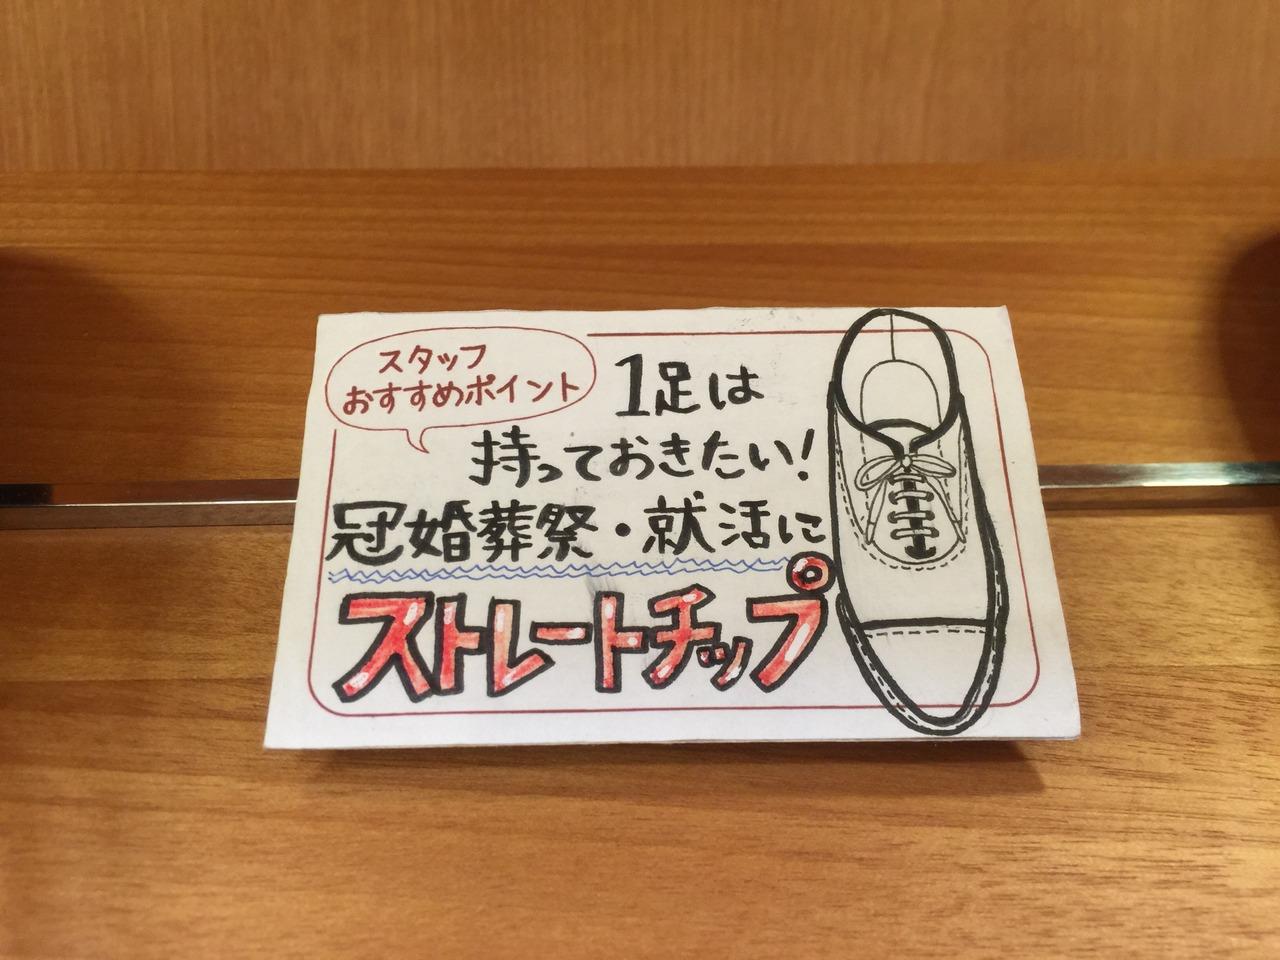 スタッフ
おすすめポイント
1足は
持っておきたい!
冠婚葬祭・就活に
ストレートチップ